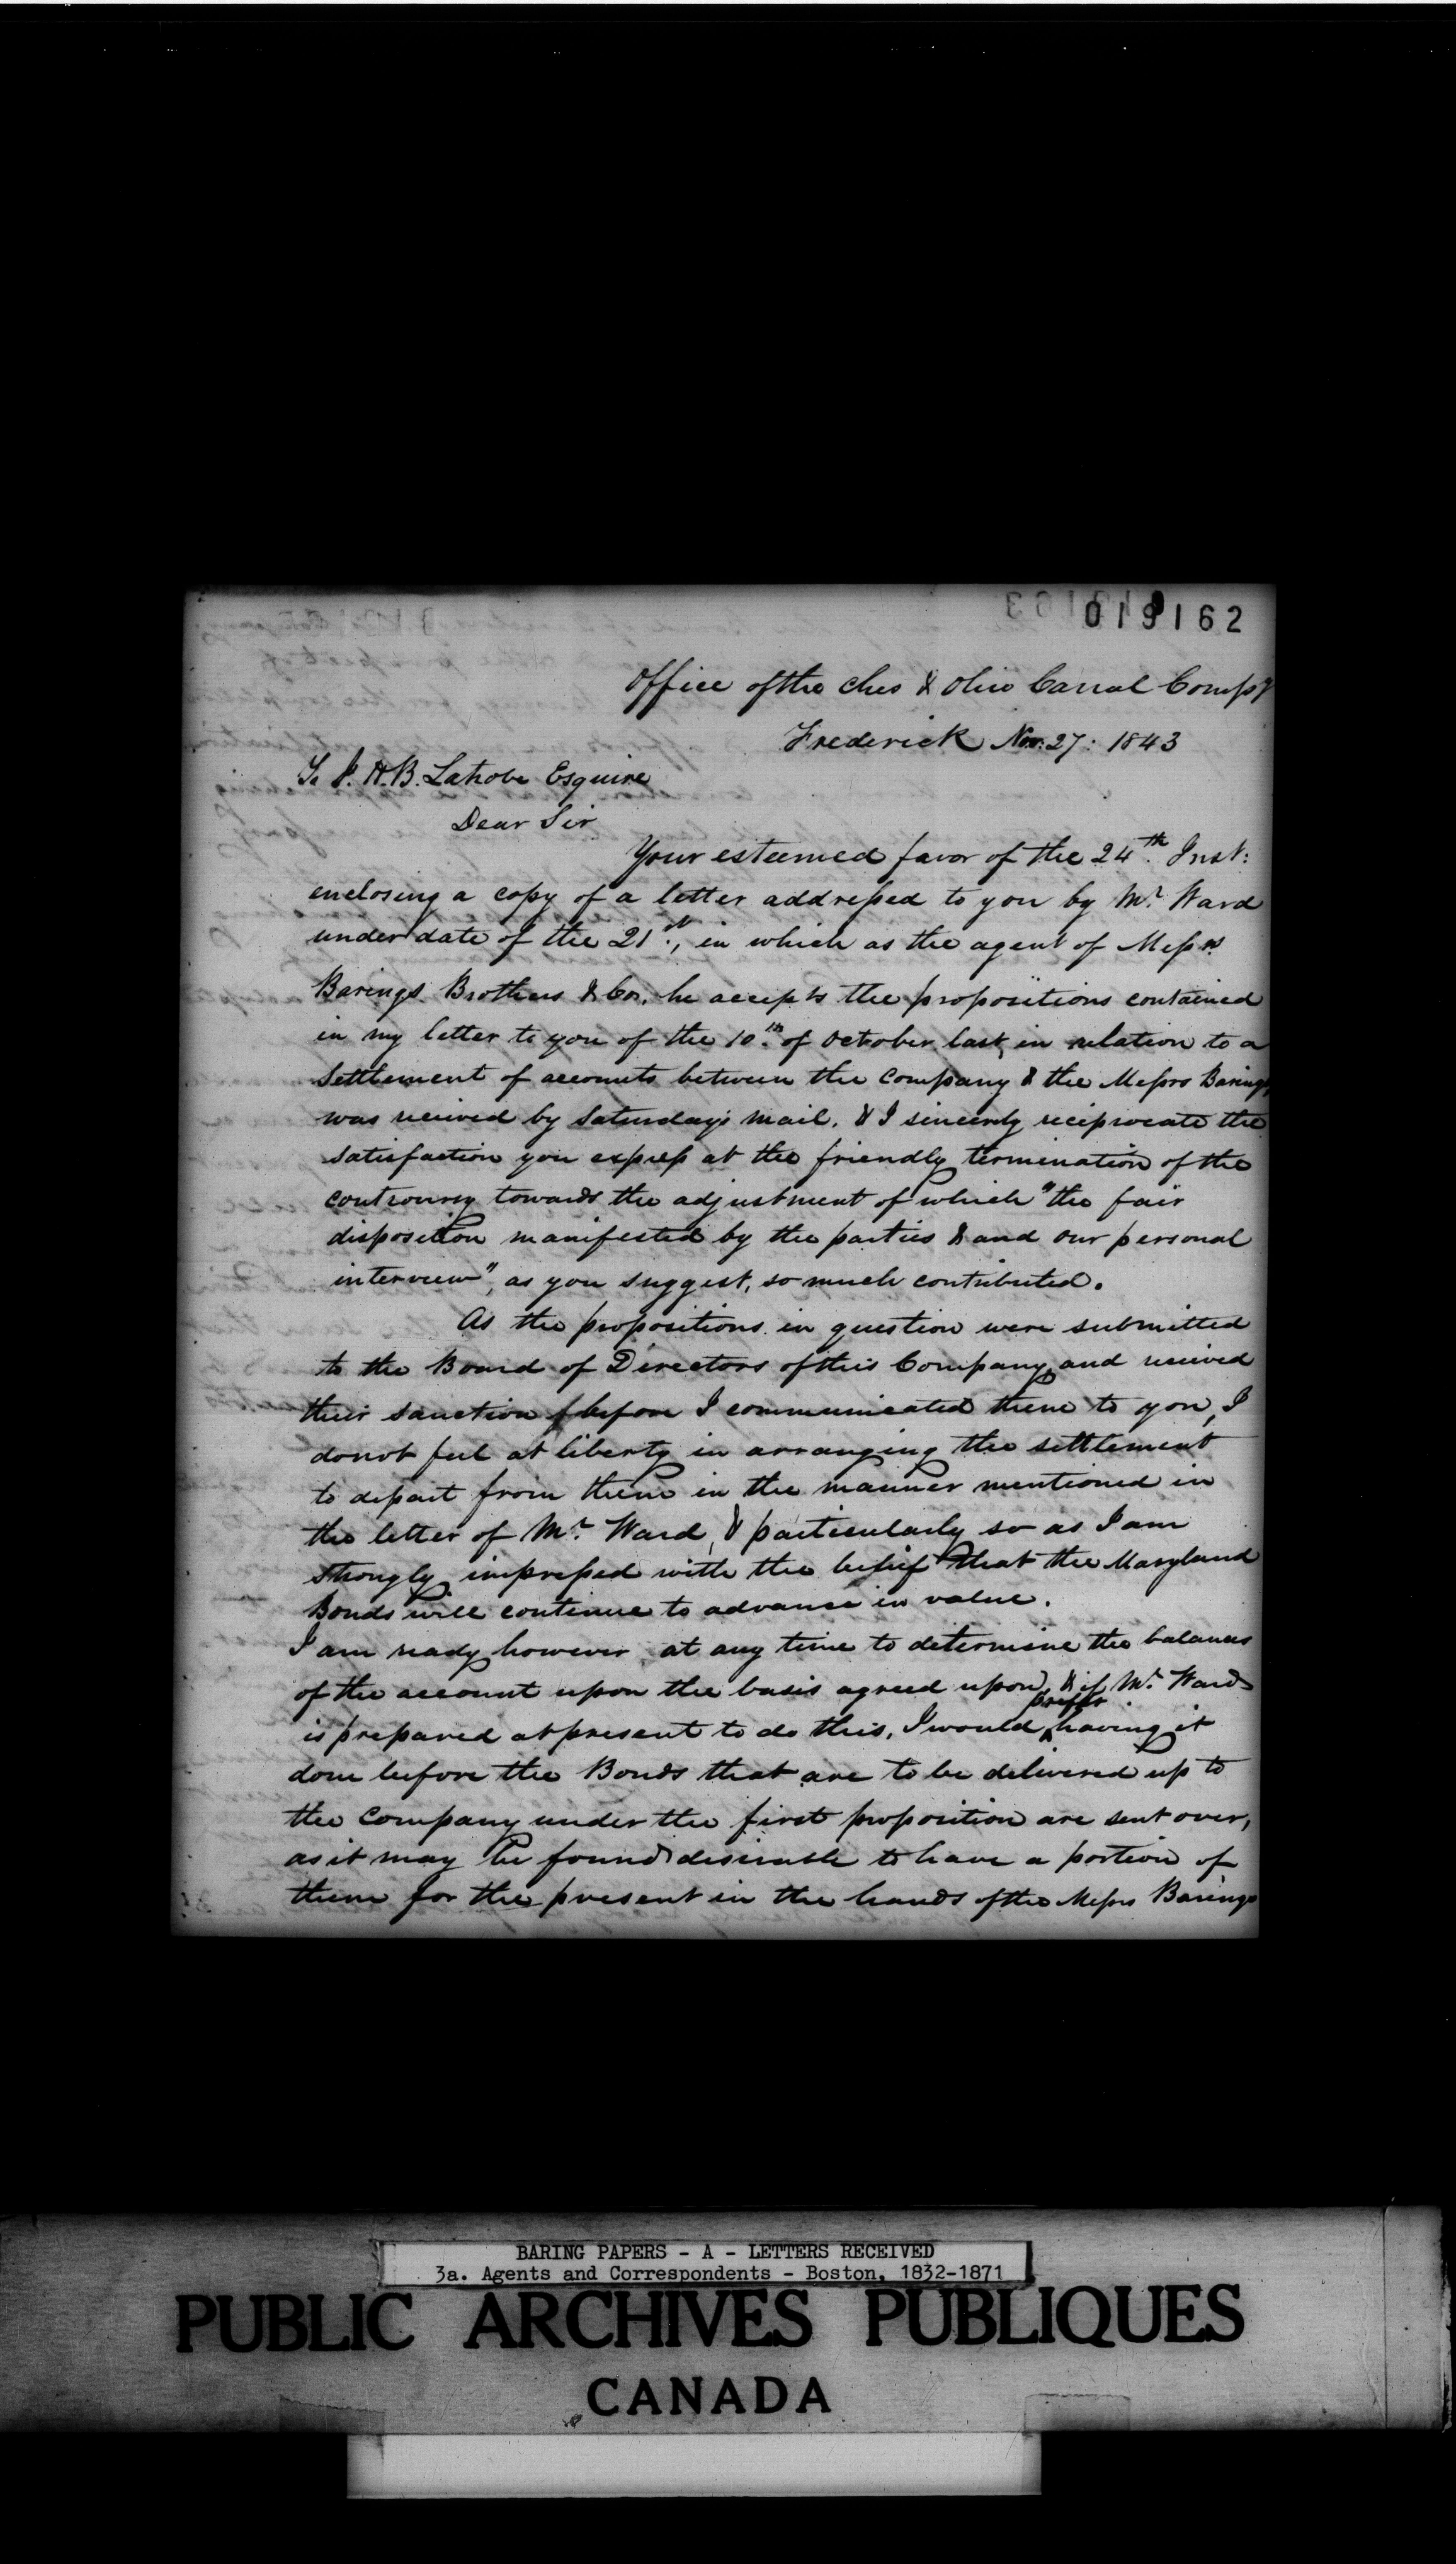 019162
Office of the Ches & Ohio Canal Compy
Frederick Nov: 27: 1843
To J. H. B. Latrobe Esquire
Dear Sir
Your esteemed favor of the 24th. Inst:
enclosing a copy of a letter addressed to you by Mr. Ward
under date of the 21st., in which as the agent of Messrs.
Barings Brothers & Co. he accepts the propositions contained
in my letter to you of the 10th. of October last, in relation to a
settlement of accounts between the Company & the Messrs Barings,
was received by Saturday's mail. & I sincerely reciprocate the
satisfaction you express at the friendly termination of the
controversy towards the adjustment of which "the fair
disposition manifested by the parties & and our personal
interview", as you suggest, so much contributed.
As the propositions in question were submitted
to the Board of Directors of this Company, and received
their sanction before I communicated them to you, I
do not feel at liberty in arranging the settlement
to depart from them in the manner mentioned in
the letter of Mr. Ward, & particularly so as I am
strongly impressed with the belief that the Maryland
Bonds will continue to advance in value.
I am ready however, at any time to determine the balances
of the account upon the basis agreed upon, & if Mr. Ward
is prepared at present to do this, I would prefer having it
done before the Bonds that are to be delivered up to
the Company under the first proposition are sent over,
as it may be found desirable to have a portion of
them for the present in the hands of the Messrs Barings
BARING PAPERS - A - LETTERS RECEIVED
3a. Agents and Correspondents - Boston, 1832-1871
PUBLIC ARCHIVES PUBLIQUES
CANADA